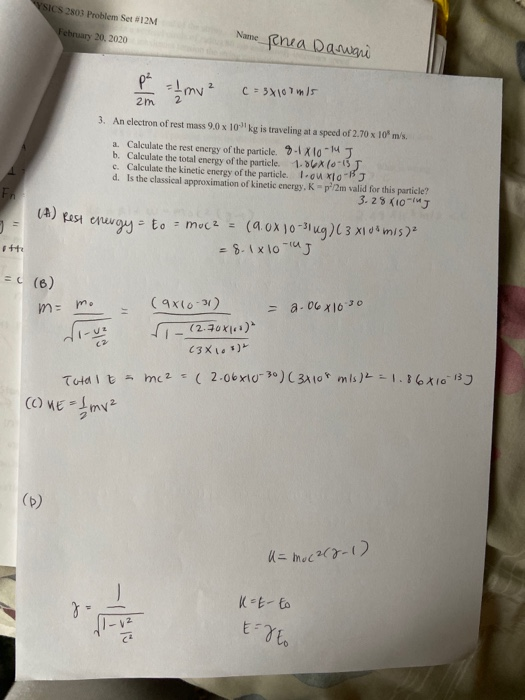 PHYSICS 2803 Problem Set #12M
February 20, 2020
Name Rhea Daswani
p²/2m = 1/2 mv² c = 3x10⁸ m/s
3. An electron of rest mass 9.0 x 10⁻³¹ kg is traveling at a speed of 2.70 x 10⁸ m/s.
a. Calculate the rest energy of the particle. 8.1 x 10⁻¹⁴ J
b. Calculate the total energy of the particle. 1.86x10⁻¹³ J
c. Calculate the kinetic energy of the particle. 1.04 x10⁻¹³ J
d. Is the classical approximation of kinetic energy, K = p²/2m valid for this particle?
3.28 x10⁻¹⁴ J
(A) Rest energy = E₀ = m₀c² = (9.0x10⁻³¹kg)(3x10⁸m/s)²
= 8.1x10⁻¹⁴ J
(B)
m = m₀/√(1-v²/c²) = (9x10⁻³¹)/√(1-(2.70x10⁸)²/(3x10⁸)²) = 2.06x10⁻³⁰
Total E = mc² = (2.06x10⁻³⁰)(3x10⁸ m/s)² = 1.86x10⁻¹³ J
(C) KE = 1/2 mv²
(D)
K = m₀c²(γ-1)
γ = 1/√(1-v²/c²)
K = E-E₀
E = γE₀